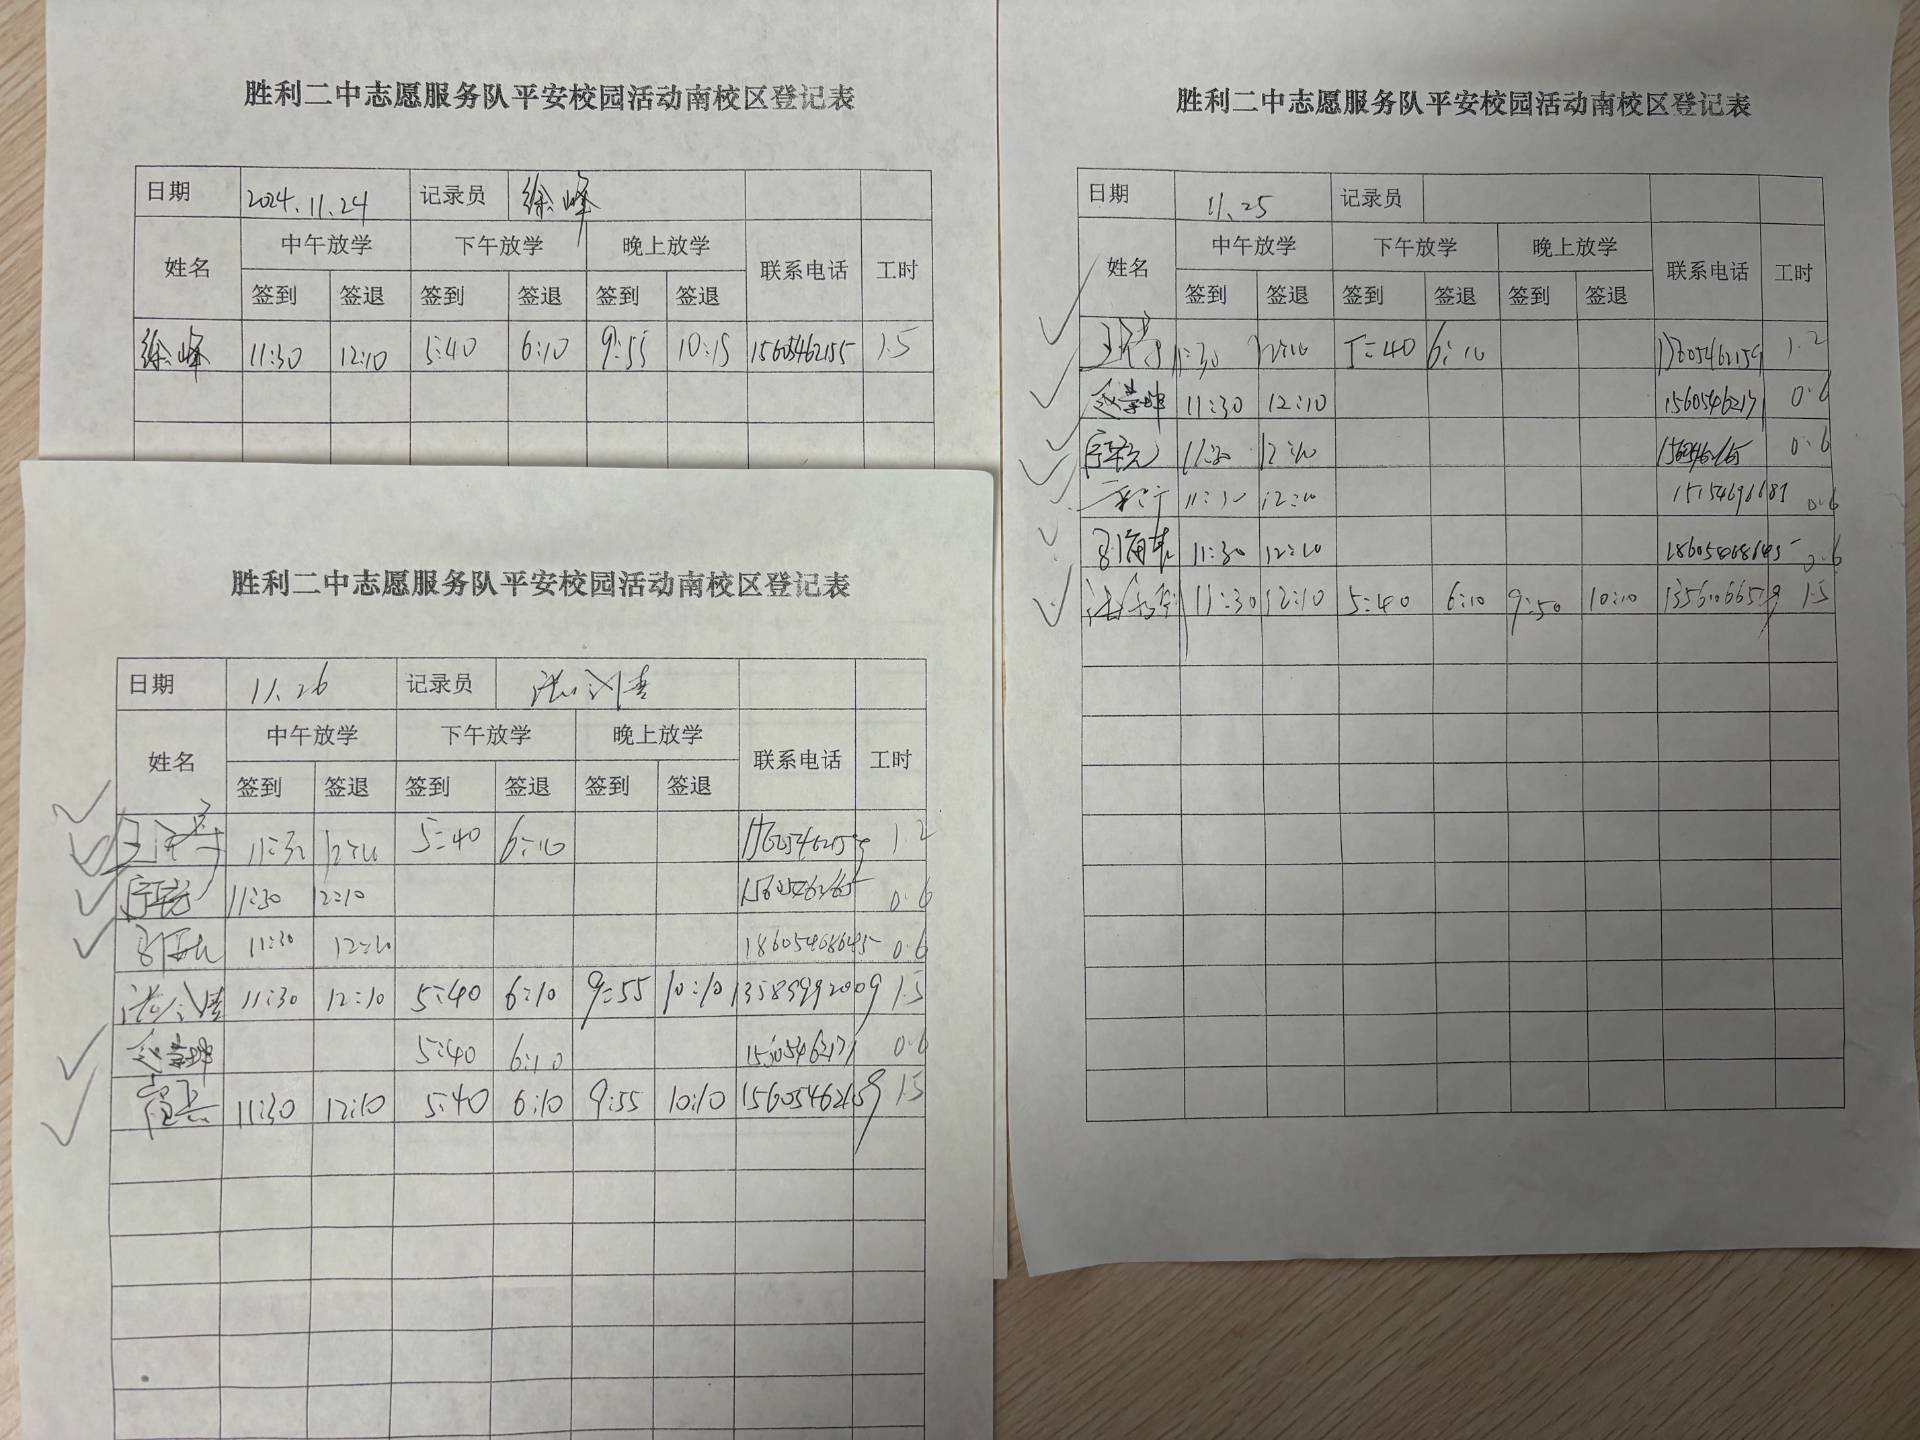 胜利二中志愿服务队平安校园活动南校区登记表
日期 2024.11.24 记录员 徐峰
姓名 中午放学 下午放学 晚上放学 联系电话 工时
签到 签退 签到 签退 签到 签退
徐峰 11:30 12:10 5:40 6:10 9:55 10:15 15605462155 1.5
胜利二中志愿服务队平安校园活动南校区登记表
日期 11.25 记录员
姓名 中午放学 下午放学 晚上放学 联系电话 工时
签到 签退 签到 签退 签到 签退
11:30 12:10 5:40 6:10 1.2
11:30 12:10 15605462171 0.6
11:30 12:10 0.6
11:30 12:10 0.6
11:30 12:10 18605468645 0.6
11:30 12:10 5:40 6:10 9:50 10:10 1.5
胜利二中志愿服务队平安校园活动南校区登记表
日期 11.26 记录员
姓名 中午放学 下午放学 晚上放学 联系电话 工时
签到 签退 签到 签退 签到 签退
11:30 12:10 5:40 6:10 1.2
11:30 12:10 0.6
11:30 12:10 18605468645 0.6
11:30 12:10 5:40 6:10 9:55 10:10 13589992009 1.5
5:40 6:10 0.6
11:30 12:10 5:40 6:10 9:55 10:10 15605462159 1.5